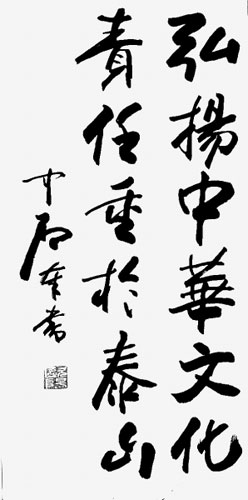 弘揚中華文化
責任重於泰山
中石書